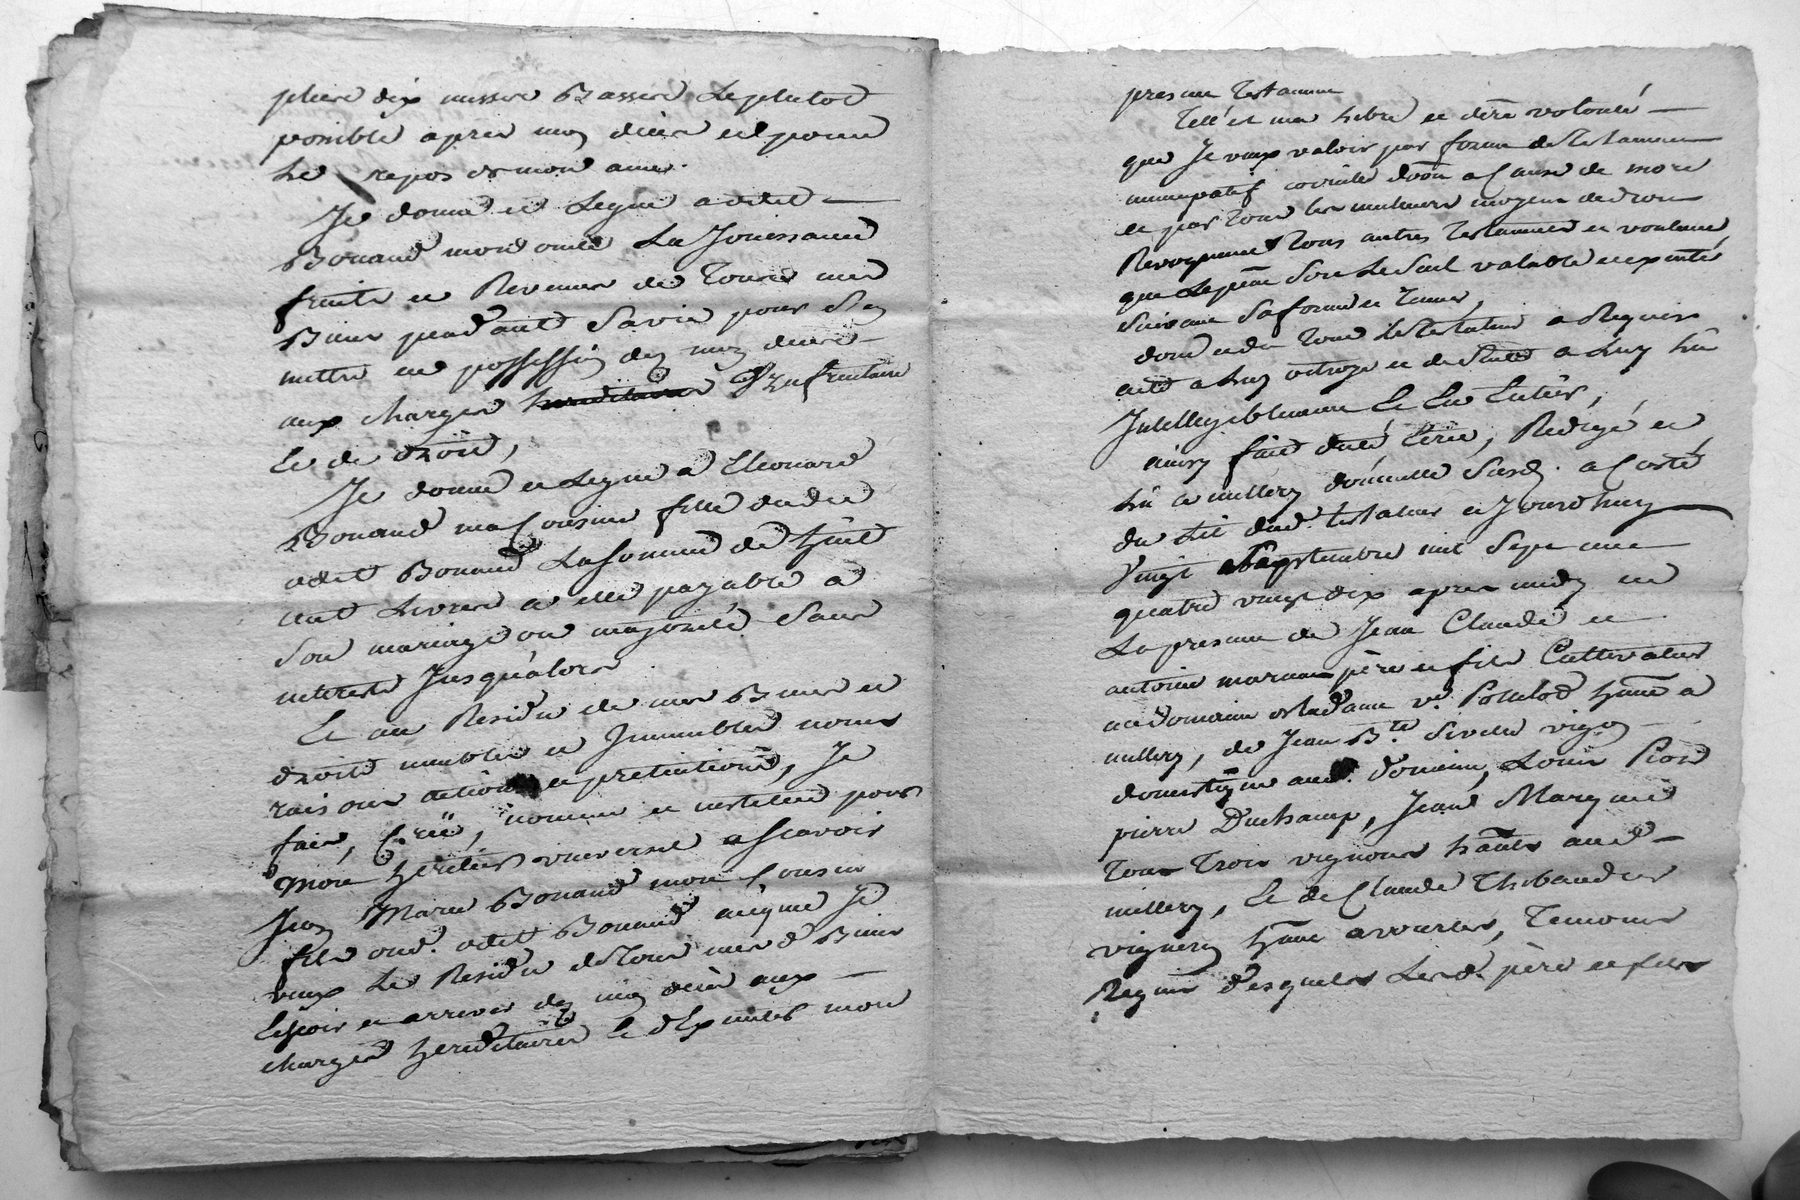 dix messes Basses Le plutot
possible apres mon déces et pour
Le repos de mon ame.
Je donne et Legue audit
Bonand mon oncle La Jouissance
fruits et Revenus de Tous mes
Biens pendant Sa vie pour S'en
mettre en possession dez mon deces
aux charges hereditaires Usufruitaire
Et de droit,
Je donne et Legue a Eleonard
Bonand ma Cousine fille dudit
odet Bonand La Somme de huit
cent Livres a elle payable a
Son mariage ou majorité Sans
interets Jusqu'alors
Et au Residu de mes Biens et
droits meubles et Immeubles noms
raisons actions et pretentions, Je
fais, Crée, nomme et institue pour
mon heritier universel a Scavoir
Jean Marie Bonand mon Cousin
fils dud. odet Bonand auquel Je
veux Le Residu de Tous mes d. Biens
Echoir et arriver dez mon décès aux
charges hereditaires Et d'Exécuter mon
present Testament
Tell'est ma Libre et dere volonté
que Je veux valoir par forme de testament
nuncupatif codicile don a Cause de mort
et par Tous les meilleurs moyens de droit
Revoquant Tous autres Testaments et voulant
que Le pnt Soit Le Seul valable et exécuté
Suivant Sa forme et Teneur,
dont et du Tout Le Testateur a Requis
acte a Luy octroyé et de Suite a Luy Lû
Intelligiblement Et En Entier,
ainsy fait dicté Ecrit, Redigé et
Lû a millery domicille Susd. a Costé
du Lit dud. testateur ce Jourd'huy
vingt Septembre mil Sept cent
quatre vingt dix apres midy en
La presence de Jean Claude et
antoine pere et fils Cultivateurs
au domaine de la dame ve. Pouclod hants a
millery, de Jean Bte. vigon
domestique aud. domaine, Louis Piot
pierre Duchamp, Jean Marque
Tous Trois vignerons hants aud.
millery, Et de Claude Thibaudier
vigneron hant a vourles, Temoins
Requis desquels Lesd. père et fils